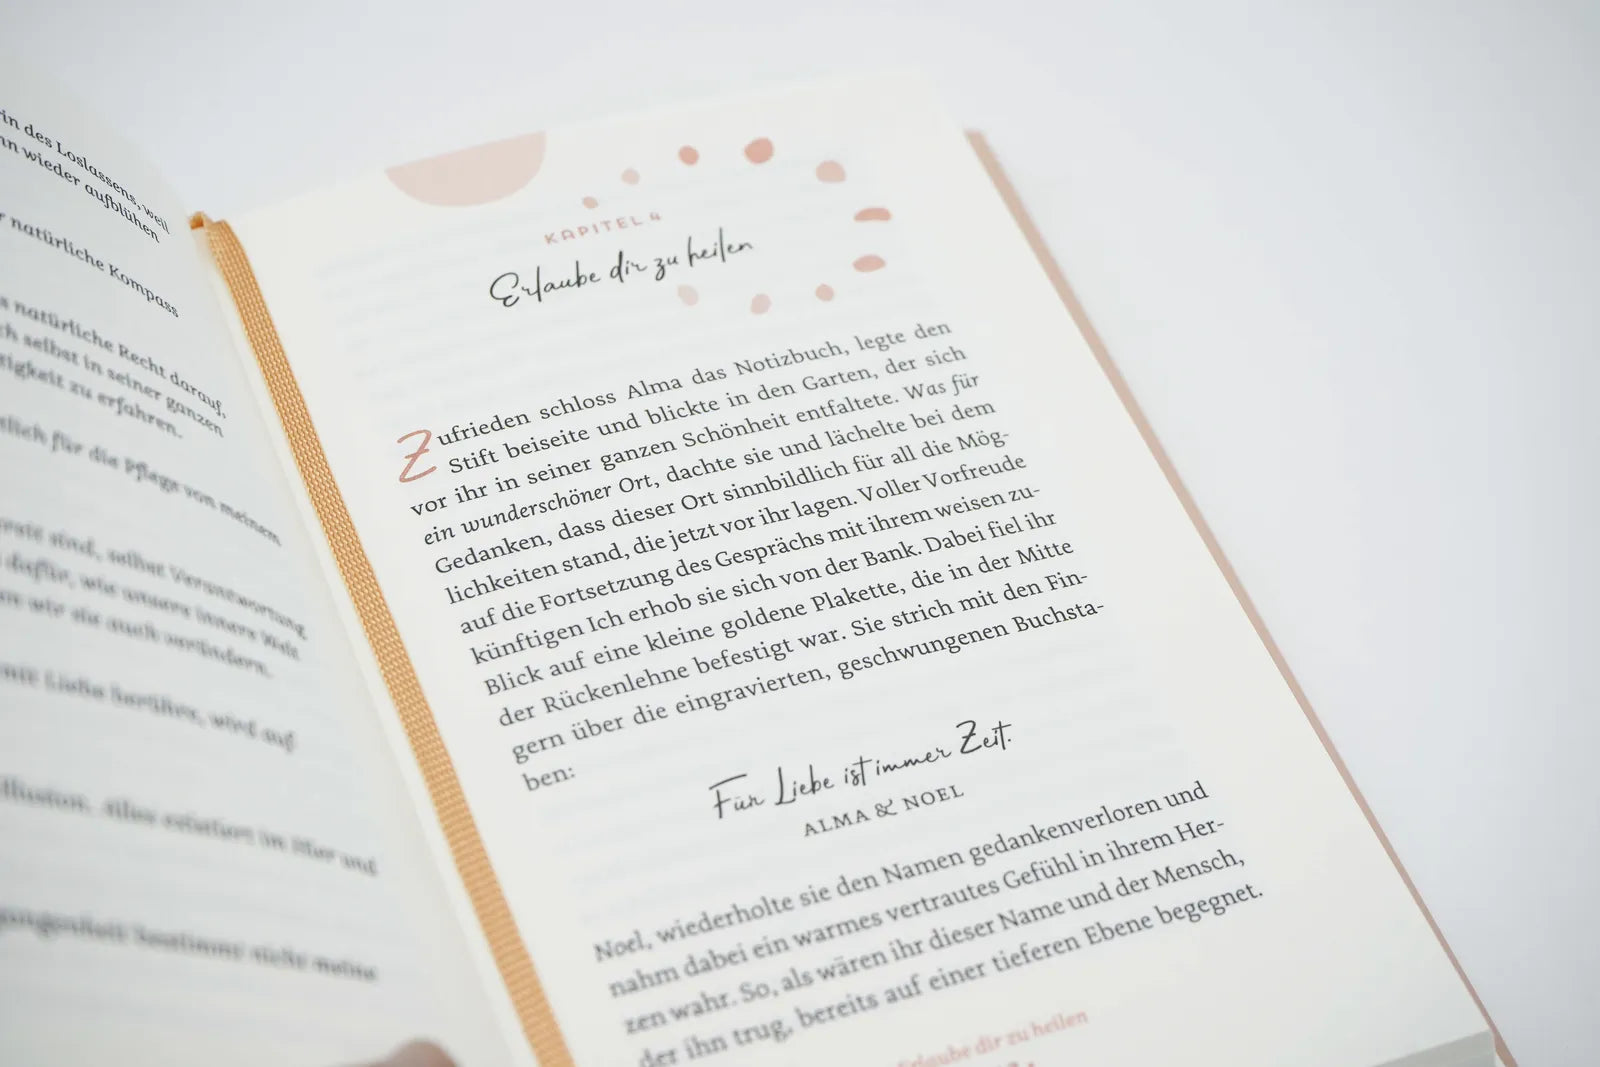 in des Loslassens, weil
nn wieder aufblühen
natürliche Kompass
natürliche Recht darauf,
ch selbst in seiner ganzen
tigkeit zu erfahren.
tlich für die Pflege von meinem
sind, selbst Verantwortung
dafür, wie unsere innere Welt
wir sie auch verändern.
mit Liebe berührt, wird auf
Illusion. Alles existiert im Hier und
gangenheit bestimmt nicht meine
KAPITEL 4
Erlaube dir zu heilen
Zufrieden schloss Alma das Notizbuch, legte den
Stift beiseite und blickte in den Garten, der sich
vor ihr in seiner ganzen Schönheit entfaltete. Was für
ein wunderschöner Ort, dachte sie und lächelte bei dem
Gedanken, dass dieser Ort sinnbildlich für all die Mög-
lichkeiten stand, die jetzt vor ihr lagen. Voller Vorfreude
auf die Fortsetzung des Gesprächs mit ihrem weisen zu-
künftigen Ich erhob sie sich von der Bank. Dabei fiel ihr
Blick auf eine kleine goldene Plakette, die in der Mitte
der Rückenlehne befestigt war. Sie strich mit den Fin-
gern über die eingravierten, geschwungenen Buchsta-
ben:
Für Liebe ist immer Zeit.
ALMA & NOEL
Noel, wiederholte sie den Namen gedankenverloren und
nahm dabei ein warmes vertrautes Gefühl in ihrem Her-
zen wahr. So, als wären ihr dieser Name und der Mensch,
der ihn trug, bereits auf einer tieferen Ebene begegnet.
Erlaube dir zu heilen